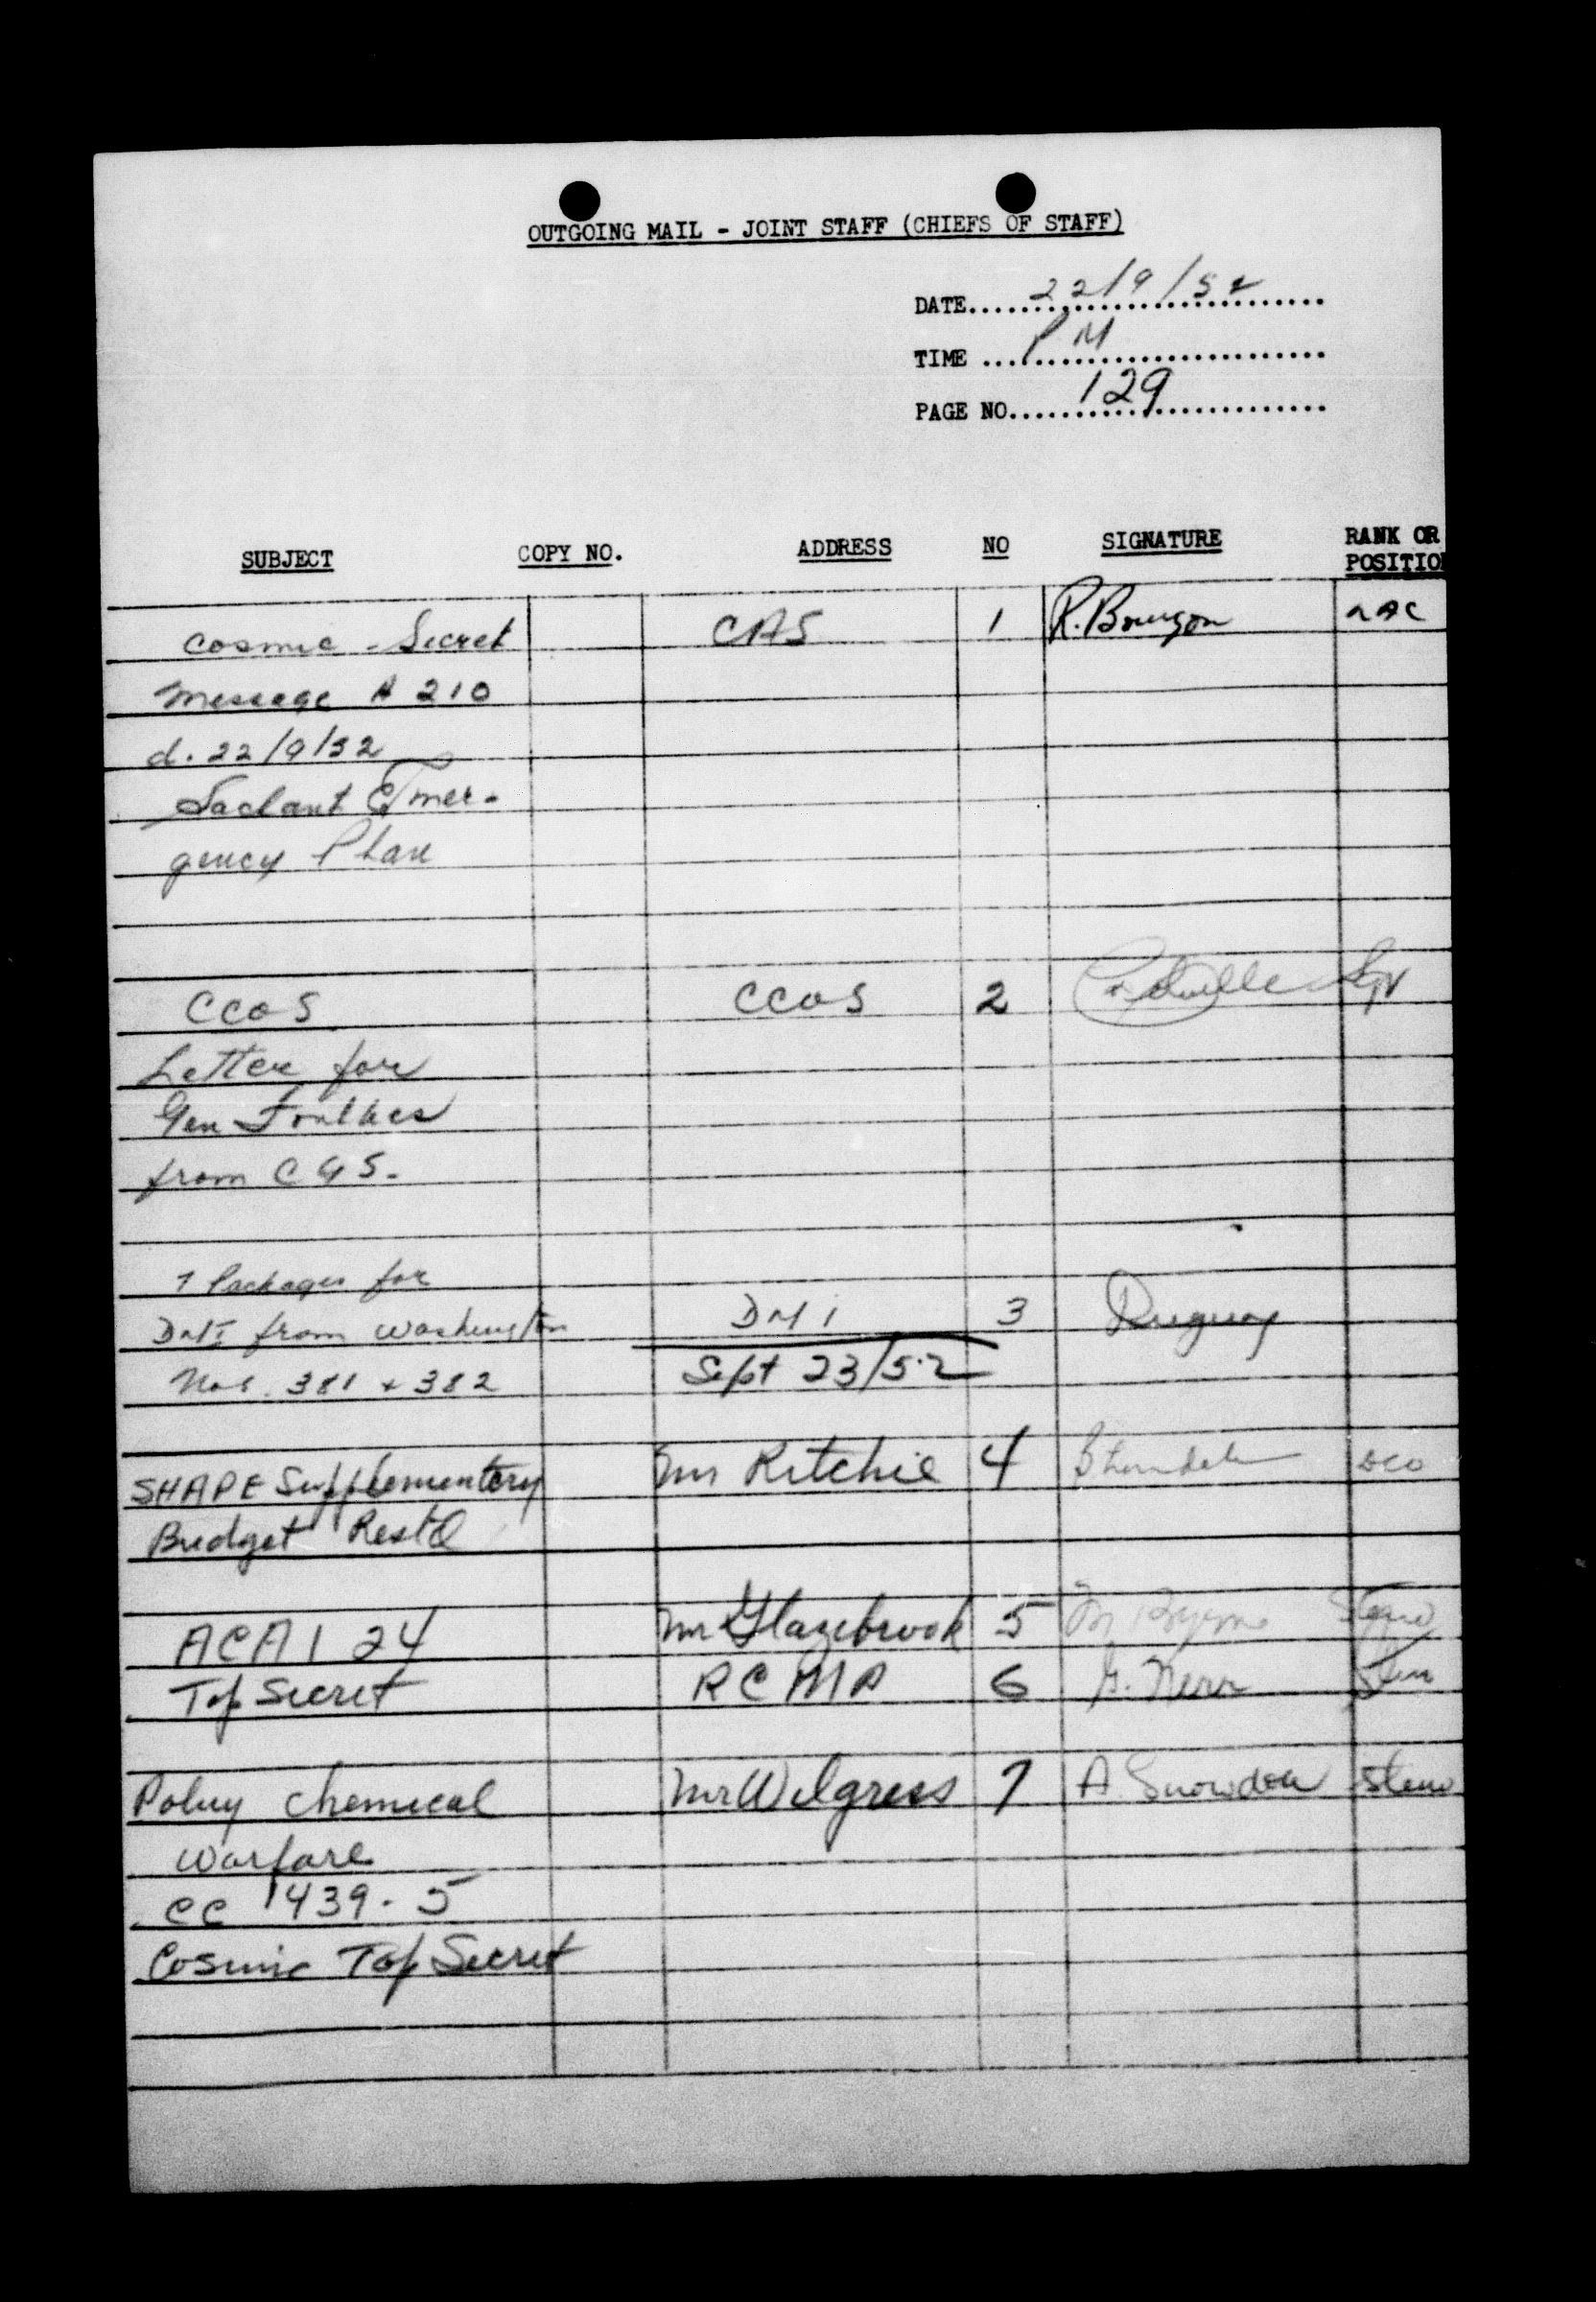 OUTGOING MAIL - JOINT STAFF (CHIEFS OF STAFF)
DATE 22/9/52
TIME PM
PAGE NO. 129
SUBJECT COPY NO. ADDRESS NO SIGNATURE RANK OR POSITION
Cosmic - Secret CAS 1 R. Bourgon LAC
Message A 210
d. 22/9/52
Saclant Emer-
gency Plan
CCOS CCOS 2
Letter for
Gen Foulkes
from CGS.
Packages for
DMI from Washington DMI 3
Nos. 381 + 382 Sept 23/52
SHAPE Supplementary Mr Ritchie 4
Budget Rest'd
ACAI 24 Mr Glazebrook 5 M Byrne Steno
Top Secret RCMP 6 Steno
Policy Chemical Mr Wilgress 7 A Snowdon Steno
Warfare
CC 1439-5
Cosmic Top Secret